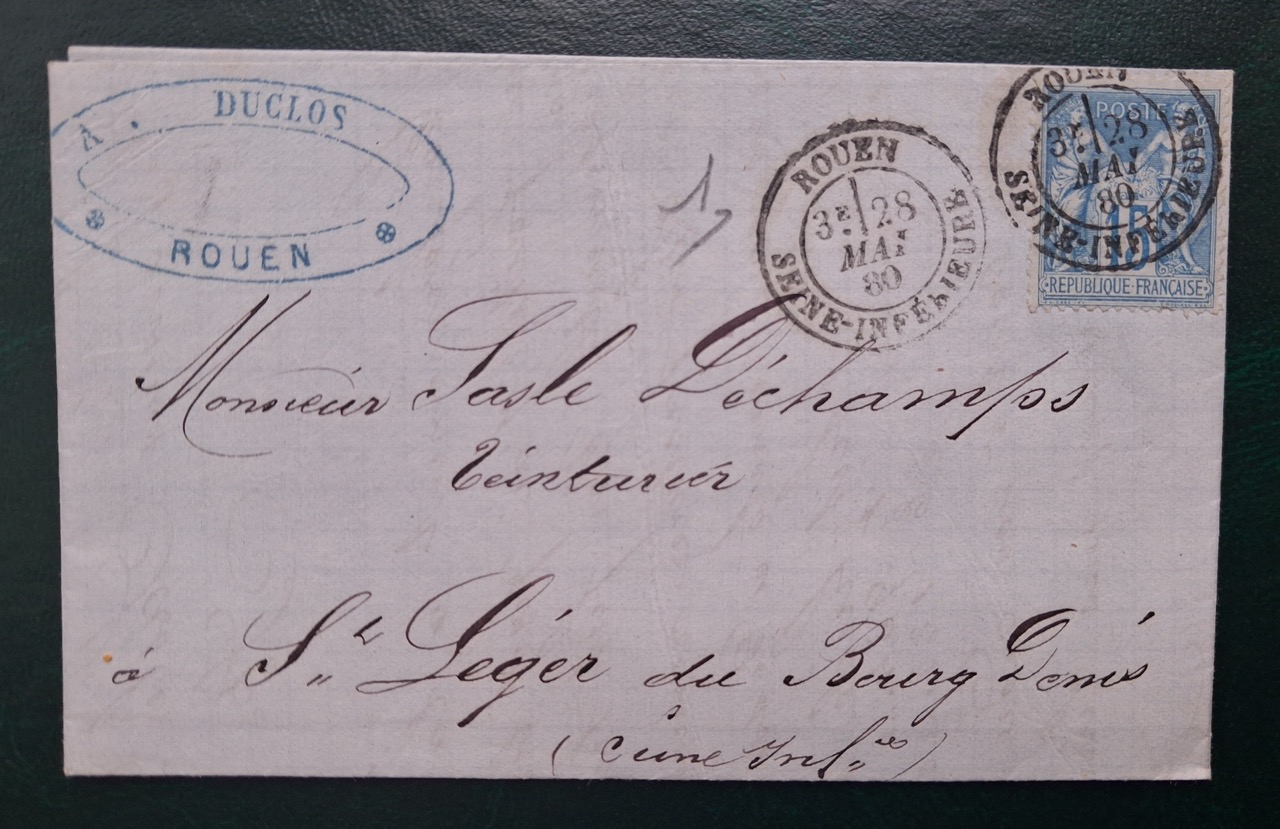 A. DUCLOS
ROUEN
1
ROUEN
3E 28
MAI
80
SEINE-INFÉRIEURE
ROUEN
3E 28
MAI
80
SEINE-INFÉRIEURE
POSTE
15
REPUBLIQUE FRANÇAISE
Monsieur Déchamps
Teinturier
à St Léger du Bourg Denis
(Seine Infre)